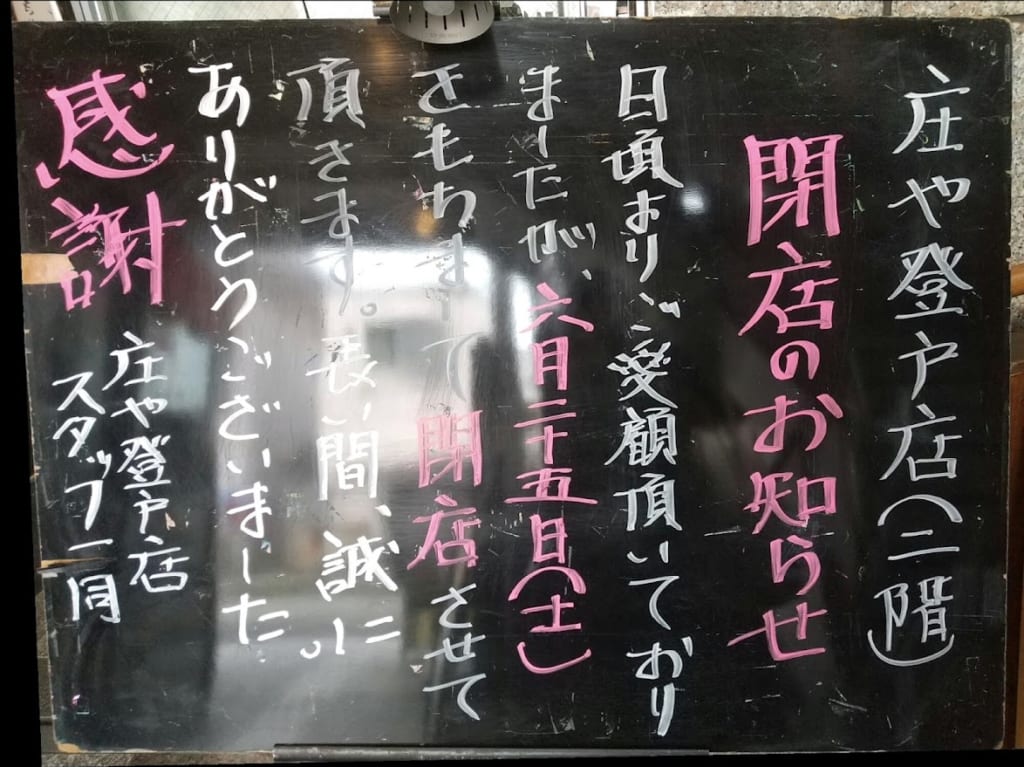 庄や登戸店(二階)
閉店のお知らせ
日頃よりご愛顧頂いており
ましたが、六月二十五日(土)
をもちまして閉店させて
頂きます。長い間、誠に
ありがとうございました。
感謝
庄や登戸店
スタッフ一同